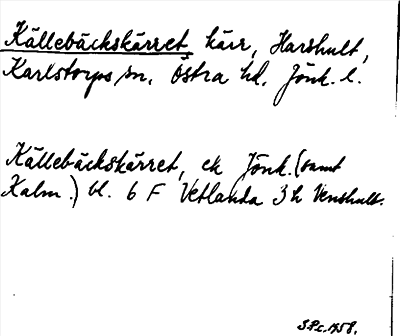 Källebäckskärret, kärr, Harshult,
Karlstorps sn, Östra hd, Jönk. l.
Källebäckskärret, ek Jönk. (samt
Kalm.) bl. 6 F Vetlanda 3 h Venshult.
S.P.c. 1758.